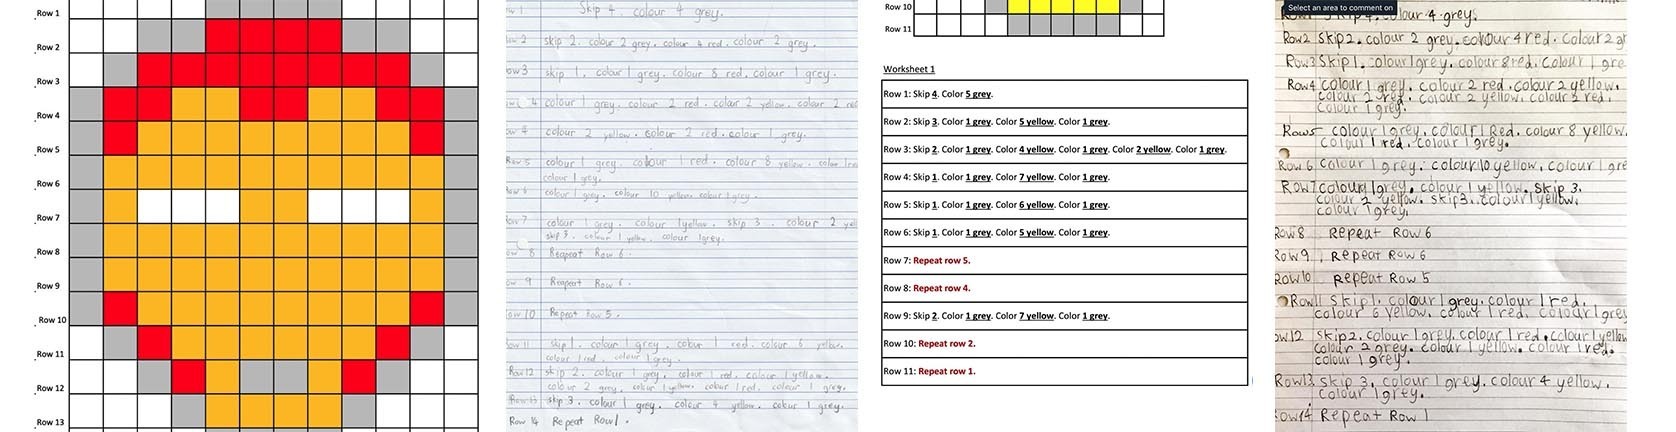 Row 1
Row 2
Row 3
Row 4
Row 5
Row 6
Row 7
Row 8
Row 9
Row 10
Row 11
Row 12
Row 13
Skip 4. colour 4 grey.
skip 2. colour 2 grey. colour 4 red. colour 2 grey.
skip 1. colour 1 grey. colour 8 red. colour 1 grey.
colour 1 grey. colour 2 red. colour 2 yellow. colour 2 red
colour 2 yellow. colour 2 red. colour 1 grey.
colour 1 grey. colour 1 red. colour 8 yellow.
colour 1 grey.
colour 1 grey. colour 10 yellow. colour 1 grey.
colour 1 grey. colour 1 yellow. skip 3. colour 2
skip 3. colour 1 yellow. colour 1 grey.
Reapeat Row 6.
Reapeat Row 6.
Repeat Row 5.
skip 1. colour 1 grey. colour 1 red. colour 6 yellow.
colour 1 red. colour 1 grey.
Row 12 skip 2. colour 1 grey. colour 1 red. colour 1 yellow.
colour 2 grey. colour 1 yellow. colour 1 red. colour 1 grey.
Row 13 skip 3. colour 1 grey. colour 4 yellow. colour 1 grey.
Row 14 Repeat Row 1.
Row 10
Row 11
Worksheet 1
Row 1: Skip 4. Color 5 grey.
Row 2: Skip 3. Color 1 grey. Color 5 yellow. Color 1 grey.
Row 3: Skip 2. Color 1 grey. Color 4 yellow. Color 1 grey. Color 2 yellow. Color 1 grey.
Row 4: Skip 1. Color 1 grey. Color 7 yellow. Color 1 grey.
Row 5: Skip 1. Color 1 grey. Color 6 yellow. Color 1 grey.
Row 6: Skip 1. Color 1 grey. Color 5 yellow. Color 1 grey.
Row 7: Repeat row 5.
Row 8: Repeat row 4.
Row 9: Skip 2. Color 1 grey. Color 7 yellow. Color 1 grey.
Row 10: Repeat row 2.
Row 11: Repeat row 1.
Select an area to comment on
colour 4 grey.
Row2 Skip2. colour 2 grey. colour 4 red. Colour 2 gr
Row3 Skip 1. colour 1 grey. colour 8 red. colour 1 gre
Row4 colour 1 grey. colour 2 red. colour 2 yellow.
colour 2 red. colour 2 yellow. colour 2 red.
colour 1 grey.
Row5 colour 1 grey. colour 1 Red. colour 8 yellow.
colour 1 red. colour 1 grey.
Row 6 colour 1 grey. colour 10 yellow. colour 1 gre
Row 7 colour 1 grey. colour 1 yellow. skip 3.
colour 2 yellow. skip 3. colour 1 yellow.
colour 1 grey.
Row 8 Repeat Row 6
Row 9 Repeat Row 6
Row 10 Repeat Row 5
Row 11 Skip 1. colour 1 grey. colour 1 red.
colour 6 yellow. colour 1 red. colour 1 grey
ow12 skip 2. colour 1 grey. colour 1 red. colour 1 yellow
colour 2 grey. colour 1 yellow. colour 1 red.
colour 1 grey.
Row13 skip 3. colour 1 grey. colour 4 yellow.
colour 1 grey.
ow14 Repeat Row 1